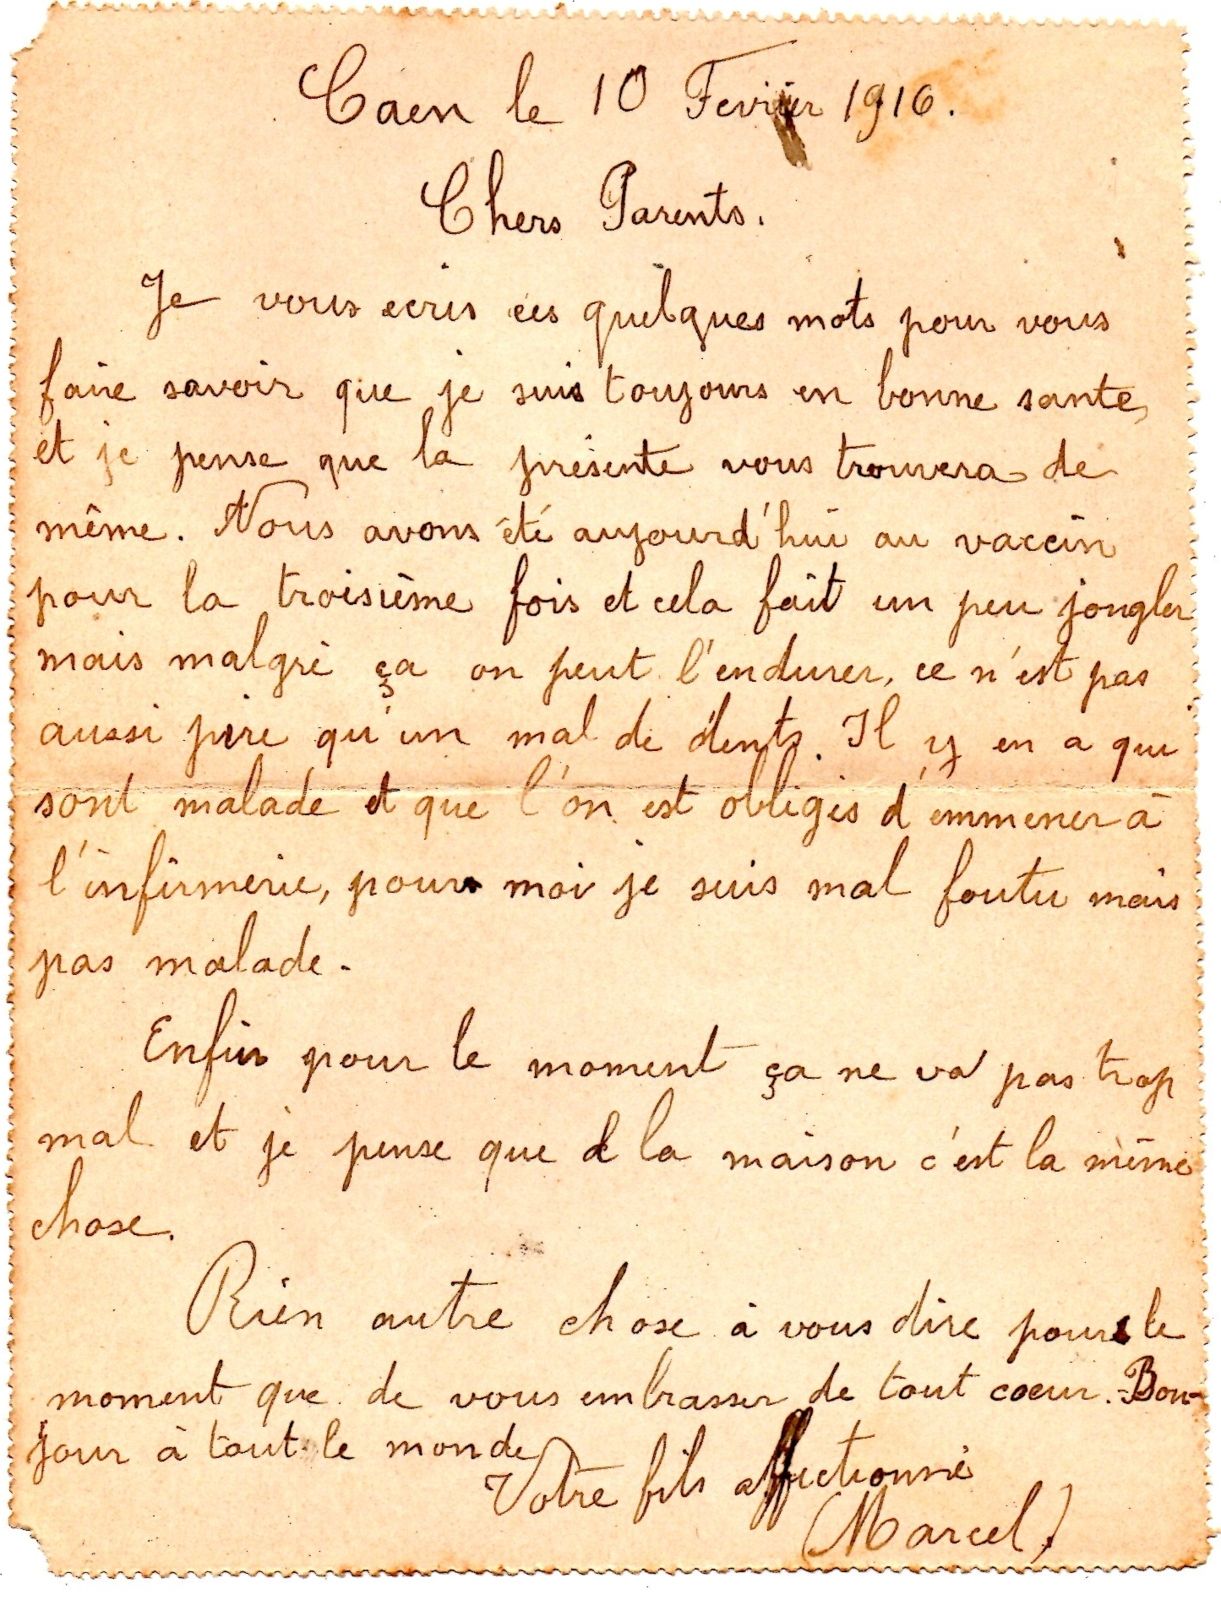 Caen le 10 Fevrier 1916.
Chers Parents.
Je vous ecris ces quelques mots pour vous
faire savoir que je suis toujours en bonne sante,
et je pense que la présente vous trouvera de
même. Nous avons été aujourd'hui au vaccin
pour la troisième fois et cela fait un peu jongler
mais malgré ça on peut l'endurer, ce n'est pas
aussi pire qu'un mal de dents. Il y en a qui
sont malade et que l'on est obligés d'emmener à
l'infirmerie, pour moi je suis mal foutu mais
pas malade.
Enfin pour le moment ça ne va pas trop
mal et je pense que d la maison c'est la même
chose.
Rien autre chose à vous dire pour le
moment que de vous embrasser de tout coeur. Bon-
jour à tout le monde
Votre fils affectionné
(Marcel)